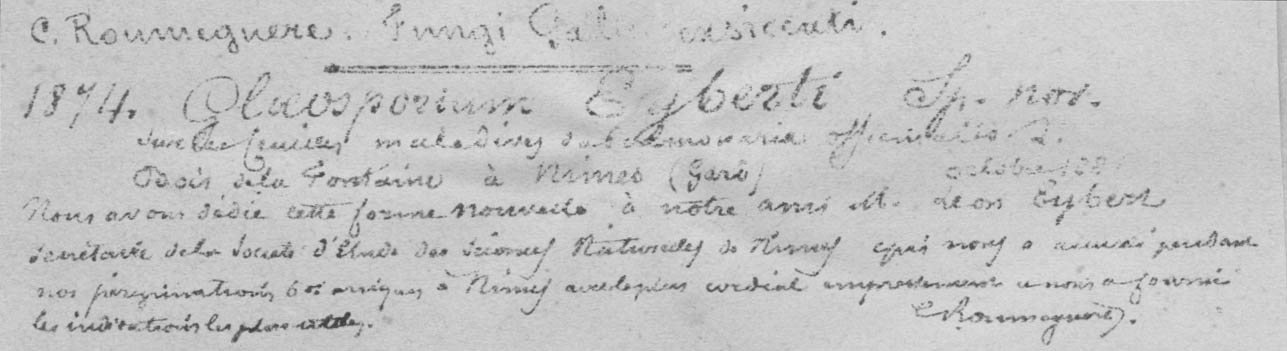 C. Roumeguere. Fungi Gallici exsiccati.
1874. Glœosporium Eyberti Sp. nov.
sur les feuilles maladives du Pulmonaria officinalis L.
Bois de la Fontaine à Nimes (Gard) octobre 188
Nous avons dédié cette forme nouvelle à notre ami M. Léon Eybert
secrétaire de la Société d'Etude des Sciences Naturelles de Nimes qui nous a pendant
nos pérégrinations botaniques à Nimes avec le plus cordial empressement a nous a fourni
les indications les plus utiles.
C. Roumeguère.